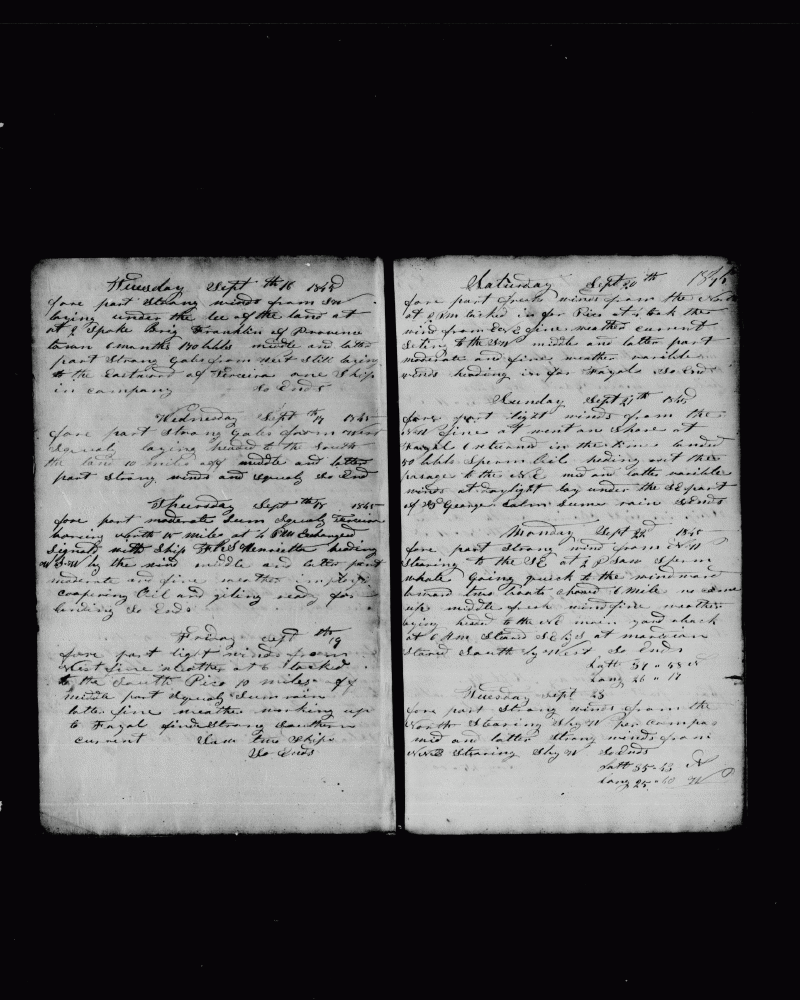 Tuesday Sept th 16 1845
fore part Strang winds from SW
laying under the lee of the land at
at 2 Spoke Brig Franklin of Provence
town 6 months 130 bbls middle and latter
part Strong Gales from West Still laying
to the Eastward of Terceira one Ship
in company So Ends
Wednesday Sept th 17 1845
fore part Strang Gales from West
Squaly laying headed to the South
the land 10 miles off middle and latter
part Strong winds and Squaly So End
Thursday Sept th 18 1845
fore part moderate Sum Squaly Terceira
baring North 15 miles at 4 PM Exchanged
Signals with Ship Henrietta heding
by the wind middle and later part
moderate and fine weather imploid
coopering Oil and giting ready for
landing So Ends
Friday Sept th 19
fore part light winds from
West fine weather at 6 tacked
to the South Pico 10 miles off
middle part Squaly Sum rain
latter fine weather working up
to Fayal find Strong Southern
current Saw two Ships
So Ends
Saturday Sept 20 th 1845
fore part fresh winds from the North
at 2 PM tacked in for Pico at 4 took the
wind from fine weather current
Seting to the SW middle and latter part
moderate and fine weather varible
winds heading in for Fayal So Ends
Sunday Sept 21 th 1845
fore part light winds from the
NW fine at went on Shore at
Fayal & returned in the time landed
50 bbls Sperm Oil heding out the
pasage to the NE mid and latter varible
winds at daylight lay under the SE part
of St Georges Calm Sume rain So Ends
Monday Sept 22d 1845
fore part Strong wind from NW
Stearing to the SE at 2 P Saw Sperm
whale Going quick to the windward
lowerd two boats chased 1 mile no come
up middle fresh wind fine weather
laying heded to the NE main yard aback
at 6 AM Stared SEbS at maridian
Stared South by West So Ends
Latt 37 " 48 N
Long 26 " 17
Tuesday Sept 23
fore part Strong winds from the
North Stearing SbyW per Compas
mid and latter Strong winds from
NNE Stearing SbyW So Ends
Latt 35 - 43 N
Long 25 - 60 W